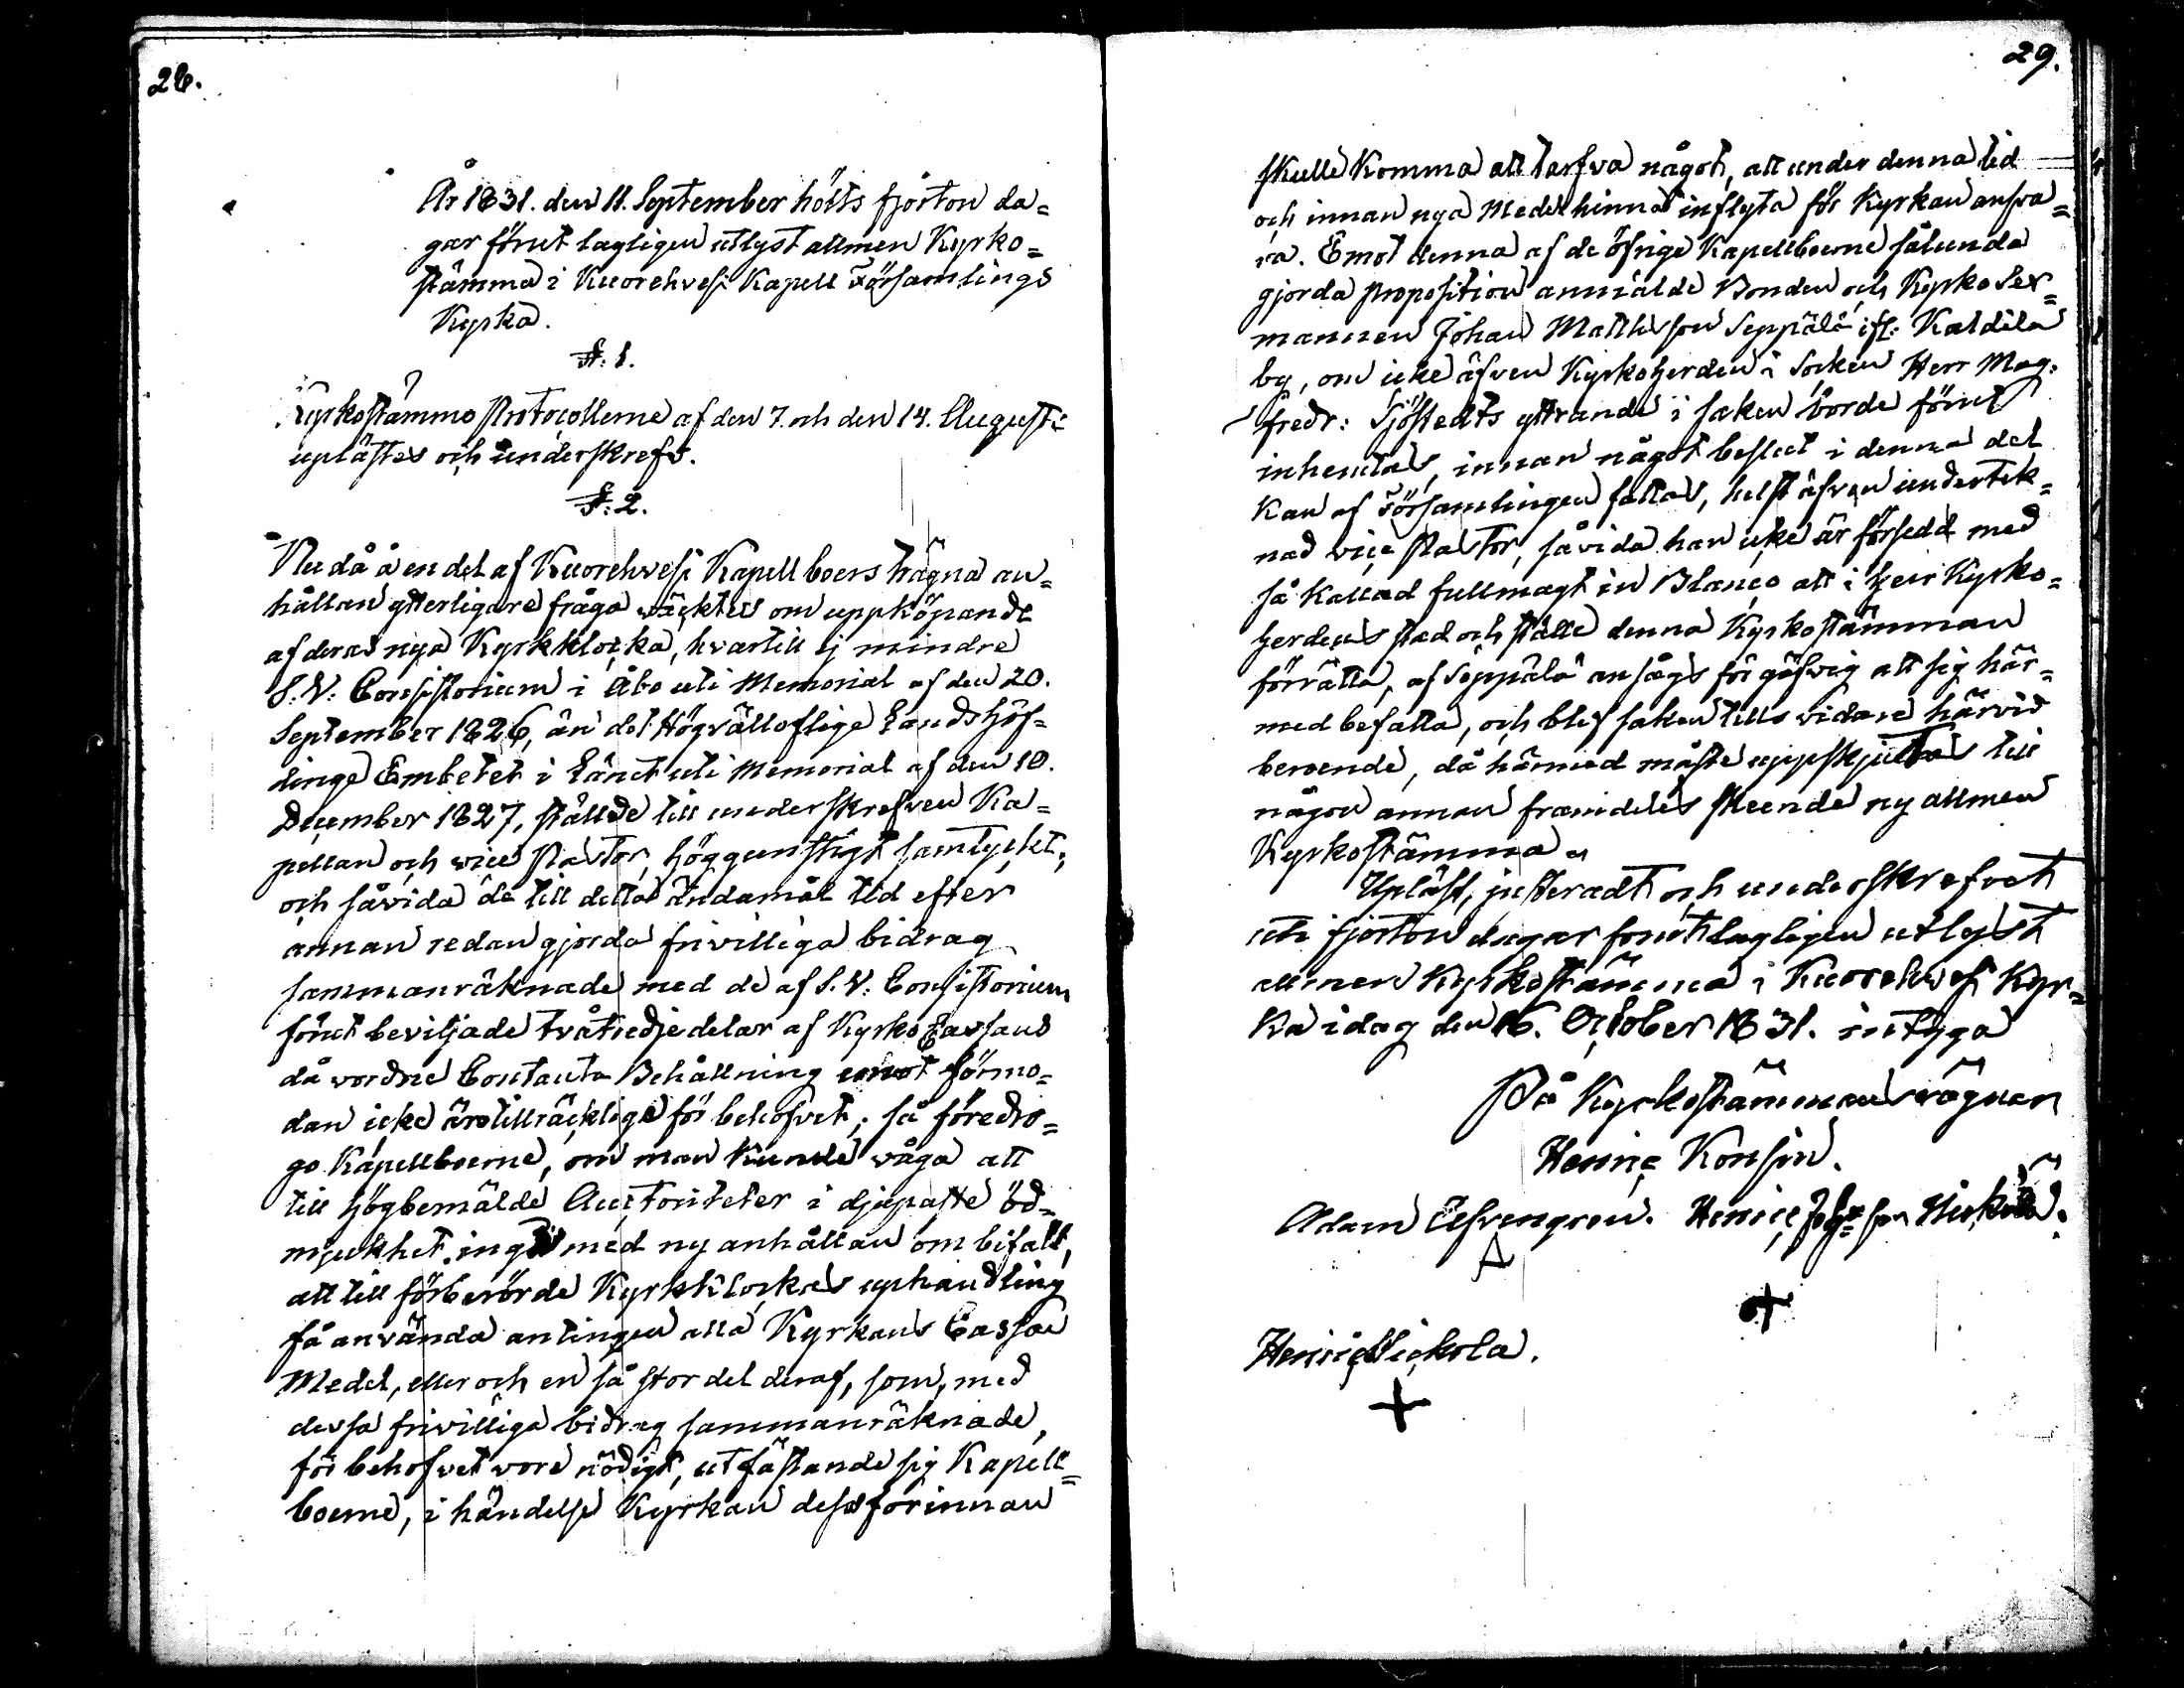 28.
År 1831. den 11. September hölts fjorton da=
gar förut lagligen utlyst allmen Kyrko=
stämma i Kuorehvesi Kapell Församlings
Kyrka.
§: 1.
Kyrkostämmo Protocollerne af den 7. och den 14. Augusti
uplästes och underskrefs.
§: 2.
Nu då å en del af Kuorehvesi Kapellboers trägna an=
hållan ytterligare fråga väcktes om uppköpande
af deras nya Kyrkklocka, hvartill ej mindre
S. V: Consistorium i Åbo uti Memorial af den 20.
September 1826, än det Högvälloflige Landshöf=
dinge Embetet i Länet uti Memorial af den 10.
December 1827, ställde till underskrefven Ka=
pellan och vice Pastor, höggunstigt samtyckt;
och såvida de till detta ändamål tid efter
annan redan gjorda frivilliga bidrag
sammanräknade med de af S. V: Consistorium
förut beviljade tvåtredjedelar af Kyrko Cassans
då vordne Contanta Behållning emot förmo=
dan icke äro tillräcklige för behofvet; så föredro=
go Kapellboerne, om man kunde våga att
till högbemälde Auctoriteter i djupaste öd=
mjukhet ingå med ny anhållan om bifall,
att till förberörde Kyrkklockas uphandling
få använda antingen alla Kyrkans Cassae
Medel, eller och en så stor del deraf, som, med
dessa frivilliga bidrag sammanräknade,
för behofvet vore nödigt, utfästande sig Kapell=
boerne, i händelse Kyrkan dessförinnan
29.
skulle komma att tarfva något, att under denna tid
och innan nya Medel hinna inflyta för Kyrkan ansva=
ra. Emot denna af de öfrige Kapellboerne sålunda
gjorda proposition anmälde Bonden och Kyrko Sex=
mannen Johan Matthsson Seppälä ifr: Kaldila
by, om icke äfven Kyrkoherden i Socken Herr Mag.
Fredr: Sjöstedts yttrande i saken borde förut
inhemtas, innan något beslut i denna del
kan af Församlingen fattas, helst äfven undertek=
nad vice Pastor, såvida han icke är försedd med
så kallad fullmagt in Blanco att i Herr Kyrko=
herdens stad och ställe denna Kyrkostämman
förrätta, af Seppälä ansågs för gäfvig att sig här=
med befatta, och blef saken tills vidare härvid
beroende, då härmed måste uppskjutas till
någon annan framdeles skeende ny allmen
Kyrkostämma.
Upläst, justeradt och underskrefvet
uti fjorton dagar förut lagligen utlyst
allmen Kyrkostämma i Kuorehvesi Kyr=
ka idag den 16. October 1831. intyga
På Kyrkostämmans vägnar
Henric Konsin.
Adam Ufvengren. Henric Johsson Hickilä.
Henric Nickola.